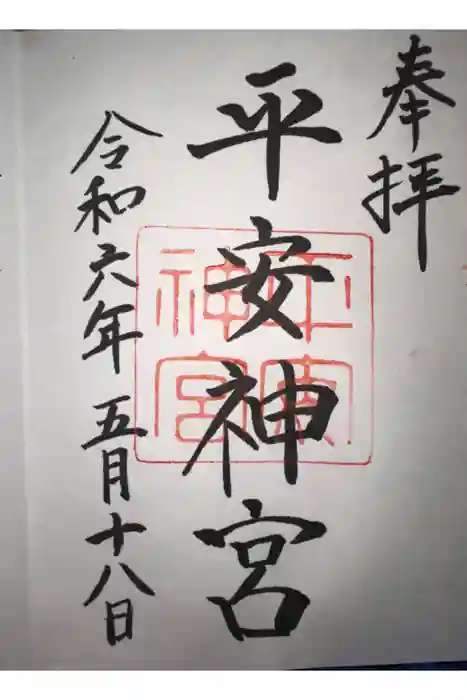 奉拝
平安神宮
令和六年五月十八日
平安
神宮